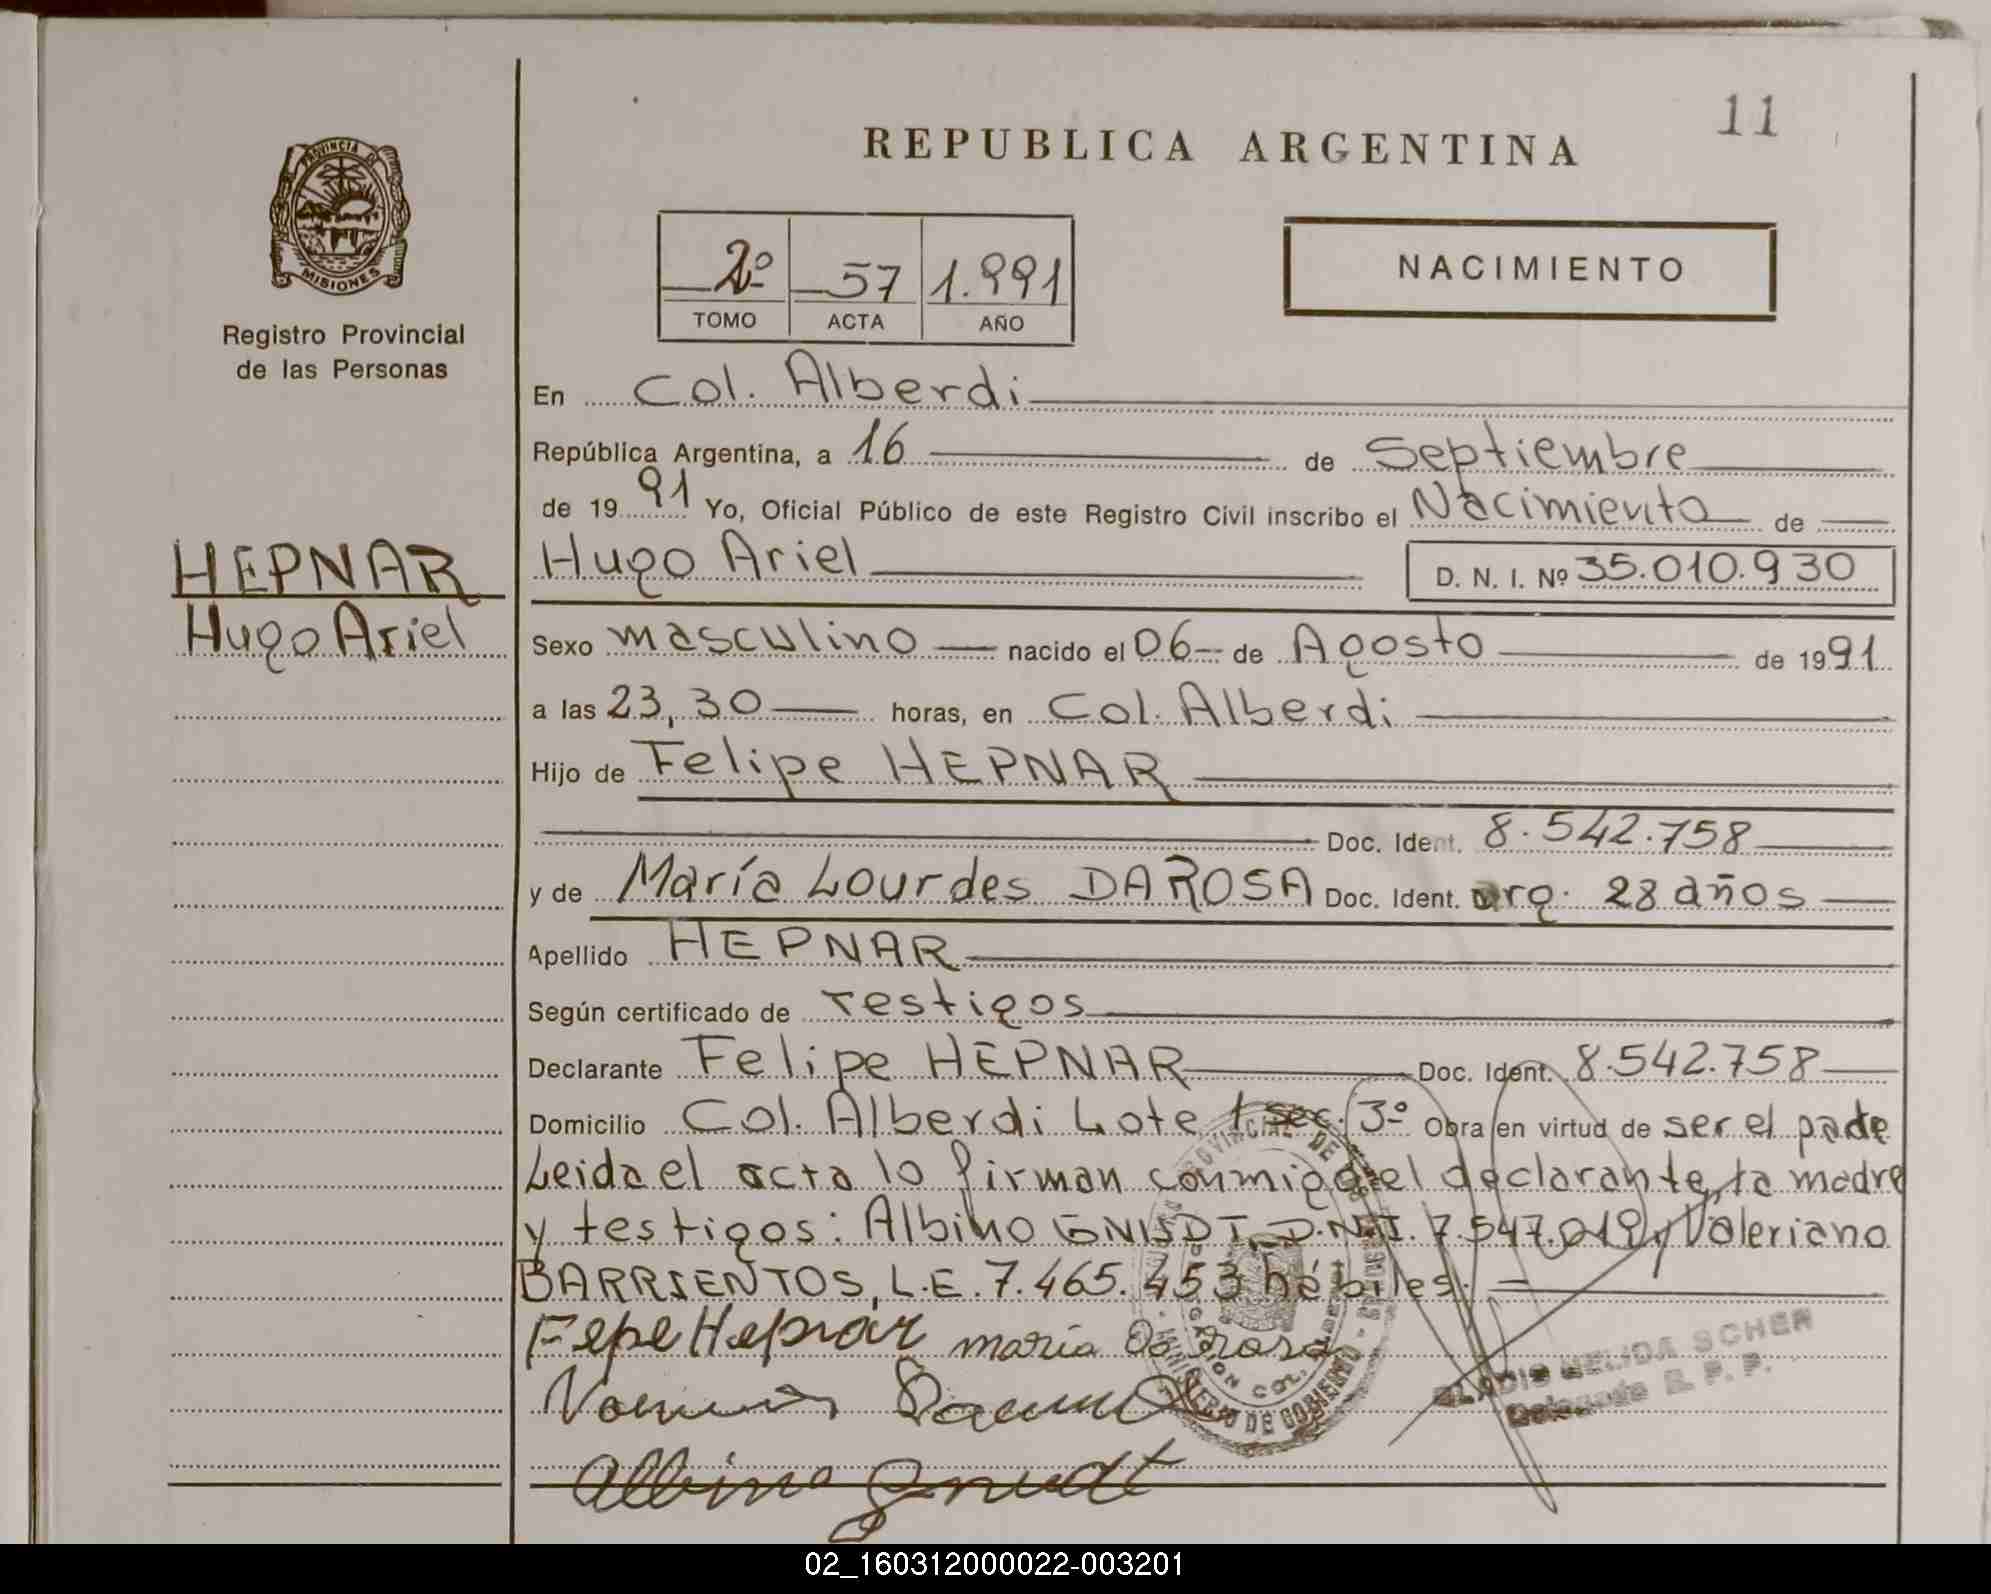 11
REPUBLICA ARGENTINA
PROVINCIA DE
MISIONES
Registro Provincial
de las Personas
2º 57 1.991
TOMO ACTA AÑO
NACIMIENTO
En Col. Alberdi
República Argentina, a 16 de Septiembre
de 1991 Yo, Oficial Público de este Registro Civil inscribo el Nacimiento de
HEPNAR
Hugo Ariel
Hugo Ariel D. N. I. Nº 35.010.930
Sexo masculino nacido el 06 de Agosto de 1991
a las 23,30 horas, en Col. Alberdi
Hijo de Felipe HEPNAR
Doc. Ident. 8.542.758
y de María Lourdes DAROSA Doc. Ident. arg. 28 años
Apellido HEPNAR
Según certificado de testigos
Declarante Felipe HEPNAR Doc. Ident. 8.542.758
Domicilio Col. Alberdi Lote 1 sec. 3º Obra en virtud de ser el padre
Leida el acta lo firman conmigo el declarante, la madre
y testigos: Albino D.N.I. 7.547.019 y Valeriano
BARRIENTOS, L.E. 7.465.453 hábiles.
Fepe Hepnar maria Da Rosa
Albino
NELIDA SCHER
Delegada R. P. P.
02_160312000022-003201